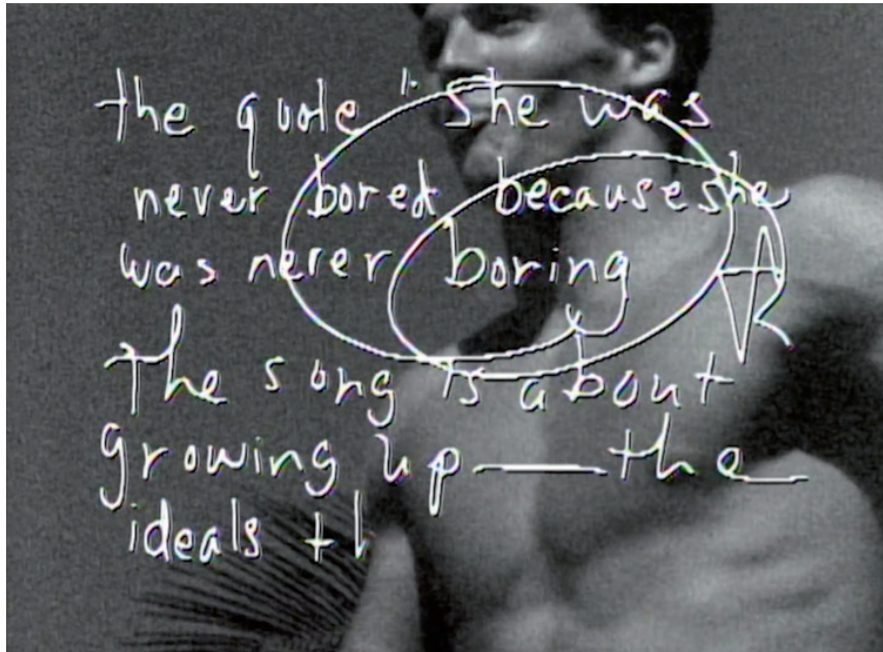 the quote "she was
never bored because she
was never boring
The song is about
growing up — the
ideals th